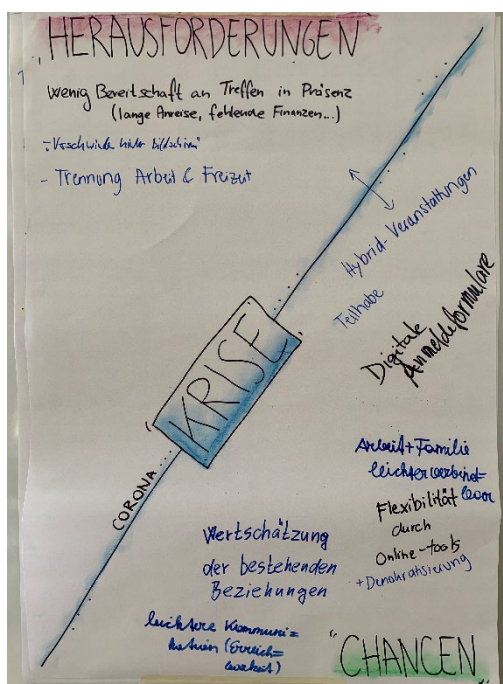 "HERAUSFORDERUNGEN
Wenig Bereitschaft an Treffen in Präsenz
(lange Anreise, fehlende Finanzen...)
hinter Bildschirm"
- Trennung Arbeit & Freizeit
Hybrid-Veranstaltungen
Teilhabe
Digitale
Anmeldeformulare
"KRISE"
CORONA...
Arbeit+Familie
leichter vereinbar
Flexibilität
durch
Online-tools
+Demokratisierung
Wertschätzung
der bestehenden
Beziehungen
leichtere Kommuni=
kation (Erreich=
barkeit)
"CHANCEN